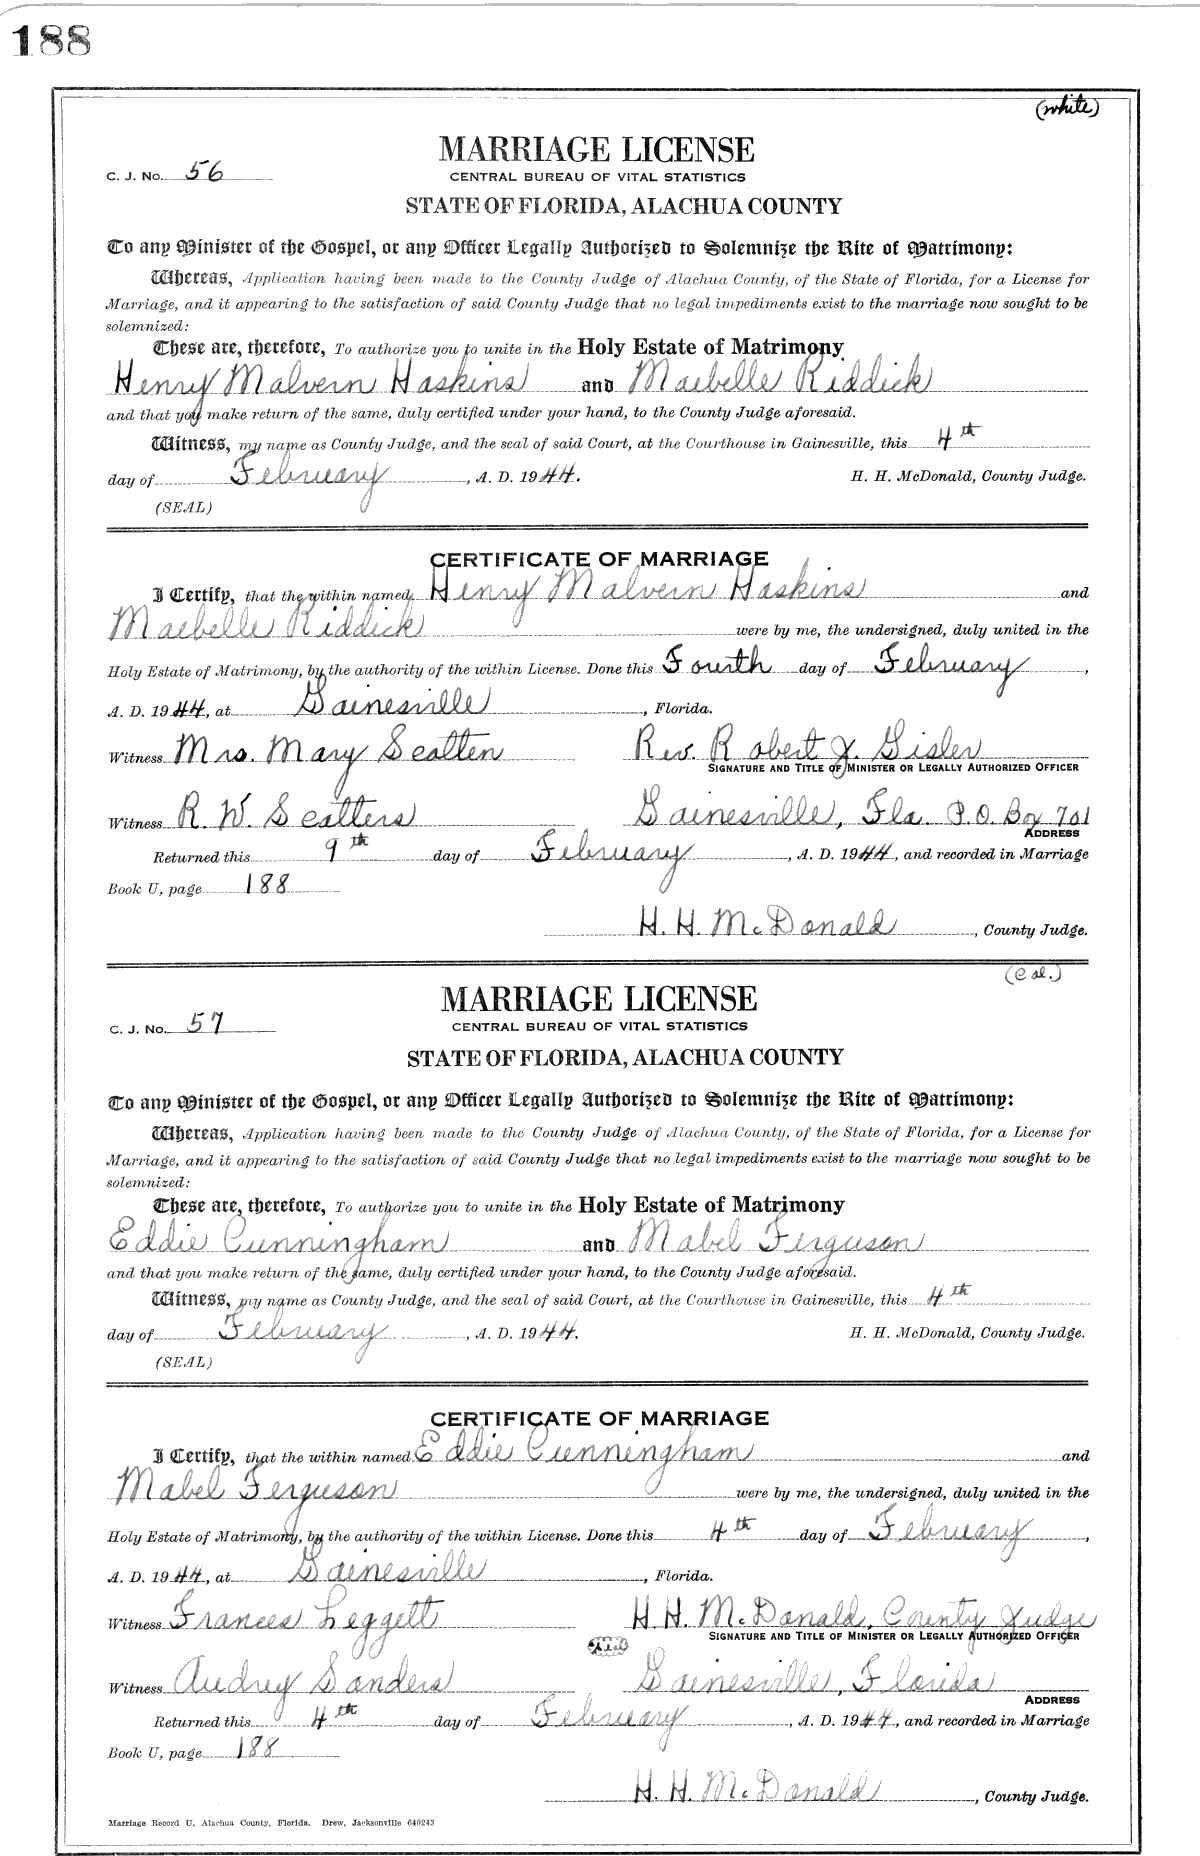 188
(white)
MARRIAGE LICENSE
C. J. No. 56
CENTRAL BUREAU OF VITAL STATISTICS
STATE OF FLORIDA, ALACHUA COUNTY
To any Minister of the Gospel, or any Officer Legally Authorized to Solemnize the Rite of Matrimony:
Whereas, Application having been made to the County Judge of Alachua County, of the State of Florida, for a License for
Marriage, and it appearing to the satisfaction of said County Judge that no legal impediments exist to the marriage now sought to be
solemnized:
These are, therefore, To authorize you to unite in the Holy Estate of Matrimony
Henry Malvern Haskins and Maebelle Riddick
and that you make return of the same, duly certified under your hand, to the County Judge aforesaid.
Witness, my name as County Judge, and the seal of said Court, at the Courthouse in Gainesville, this 4th
day of February, A. D. 1944. H. H. McDonald, County Judge.
(SEAL)
CERTIFICATE OF MARRIAGE
I Certify, that the within named Henry Malvern Haskins and
Maebelle Riddick were by me, the undersigned, duly united in the
Holy Estate of Matrimony, by the authority of the within License. Done this Fourth day of February,
A. D. 1944, at Gainesville, Florida.
Witness Mrs. Mary Scatten Rev. Robert J. Gisler
SIGNATURE AND TITLE OF MINISTER OR LEGALLY AUTHORIZED OFFICER
Witness R. W. Scatters Gainesville, Fla. P.O. Box 701
ADDRESS
Returned this 9th day of February, A. D. 1944, and recorded in Marriage
Book U, page 188
H. H. McDonald, County Judge.
(Col.)
MARRIAGE LICENSE
C. J. No. 57
CENTRAL BUREAU OF VITAL STATISTICS
STATE OF FLORIDA, ALACHUA COUNTY
To any Minister of the Gospel, or any Officer Legally Authorized to Solemnize the Rite of Matrimony:
Whereas, Application having been made to the County Judge of Alachua County, of the State of Florida, for a License for
Marriage, and it appearing to the satisfaction of said County Judge that no legal impediments exist to the marriage now sought to be
solemnized:
These are, therefore, To authorize you to unite in the Holy Estate of Matrimony
Eddie Cunningham and Mabel Ferguson
and that you make return of the same, duly certified under your hand, to the County Judge aforesaid.
Witness, my name as County Judge, and the seal of said Court, at the Courthouse in Gainesville, this 4th
day of February, A. D. 1944. H. H. McDonald, County Judge.
(SEAL)
CERTIFICATE OF MARRIAGE
I Certify, that the within named Eddie Cunningham and
Mabel Ferguson were by me, the undersigned, duly united in the
Holy Estate of Matrimony, by the authority of the within License. Done this 4th day of February,
A. D. 1944, at Gainesville, Florida.
Witness Frances Leggett H. H. McDonald, County Judge
SIGNATURE AND TITLE OF MINISTER OR LEGALLY AUTHORIZED OFFICER
Witness Audrey Sanders Gainesville, Florida
ADDRESS
Returned this 4th day of February, A. D. 1944, and recorded in Marriage
Book U, page 188
H. H. McDonald, County Judge.
Marriage Record U, Alachua County, Florida. Drew, Jacksonville 640243